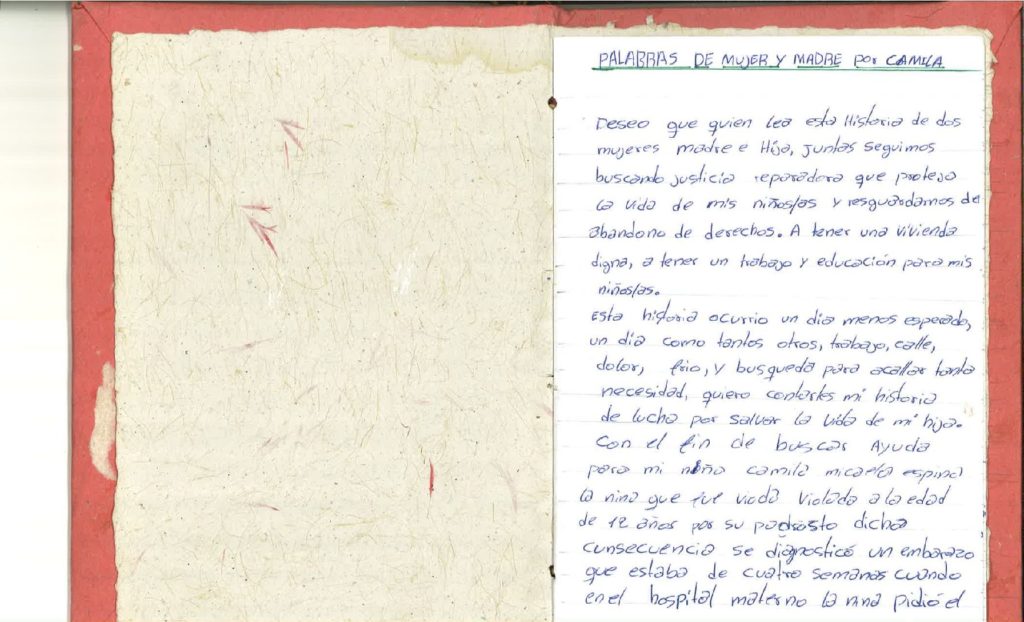 PALABRAS DE MUJER Y MADRE por CAMILA
Deseo que quien lea esta Historia de dos
mujeres madre e Hija, juntas seguimos
buscando justicia reparadora que proteja
la vida de mis niños/as y resguardarnos de
abandono de derechos. A tener una vivienda
digna, a tener un trabajo y educación para mis
niños/as.
Esta historia ocurrio un dia menos esperado,
un dia como tantos otros, trabajo, calle,
dolor, frio, y busqueda para acallar tanta
necesidad, quiero contarles mi historia
de lucha por salvar la vida de mi hija.
Con el fin de buscar Ayuda
para mi niña camila micaela
la nina que fue violada a la edad
de 12 años por su dicha
cunsecuencia se diagnosticó un embarazo
que estaba de cuatro semanas cuando
en el hospital materno la nina pidió el